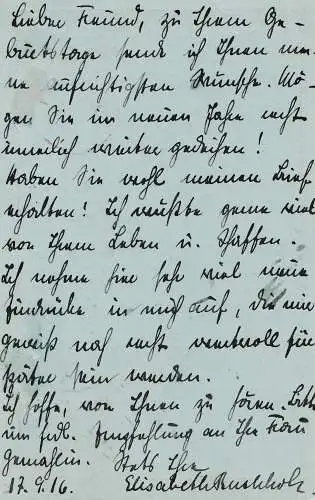 Lieber Freund, zu Ihrem Ge-
burtstage sende ich Ihnen mei-
ne aufrichtigsten Wünsche. Mö-
gen Sie im neuen Jahre recht
innerlich weiter gedeihen!
Haben Sie wohl meinen Brief
erhalten! Ich wüßte gerne viel
von Ihrem Leben u. Schaffen.
Ich nehme hier sehr viel neue
Eindrücke in mich auf, die mir
gewiß noch recht wertvoll für
später sein werden.
Ich hoffe, von Ihnen zu hören. Bitte
um frdl. Empfehlung an Ihre Frau
Gemahlin. Stets Ihre
17.9.16. Elisabeth Buchholz